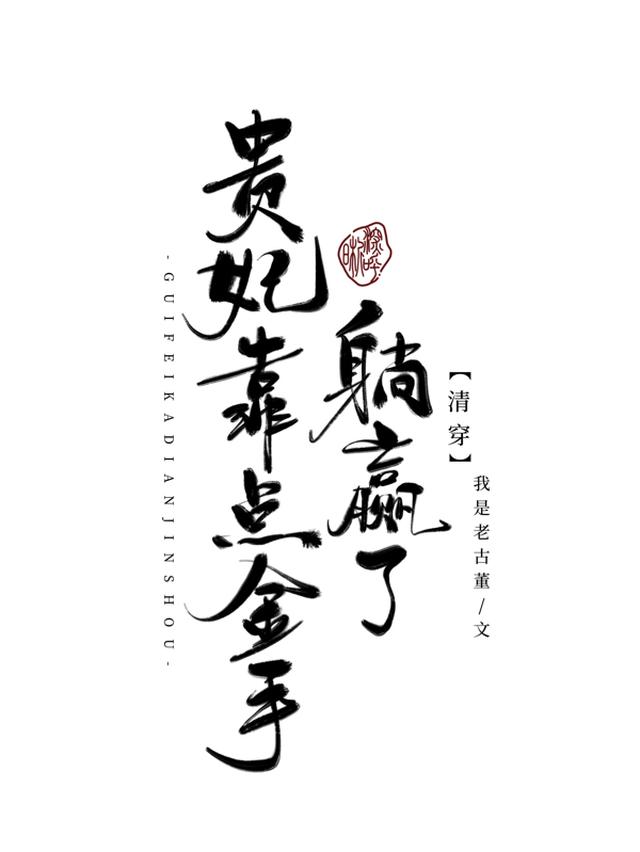 贵妃靠点金手
躺赢了
【清穿】
我是老古董/文
-GUIFEIKADIANJINSHOU-